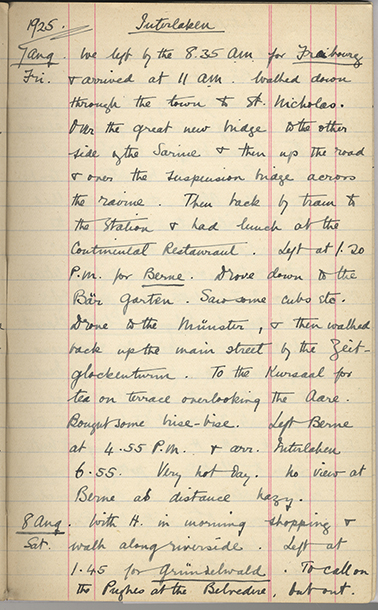 1925. Interlaken
7 Aug. We left by the 8.35 A.M. for Freibourg
Fri. & arrived at 11 A.M. Walked down
through the town to St. Nicholas.
Over the great new bridge to the other
side of the Sarine & then up the road
& over the suspension bridge across
the ravine. Then back by tram to
the Station & had lunch at the
Continental Restaurant. Left at 1.20
P.M. for Berne. Drove down to the
Bär Garten. Saw some cubs etc.
Drove to the Münster, & then walked
back up the main street by the Zeit-
glockenturm. To the Kursaal for
tea on terrace overlooking the Aare.
Bought some brise-bise. Left Berne
at 4.55 P.M. & arr. Interlaken
6.55. Very hot day. No view at
Berne as distance hazy.
8 Aug. With H. in morning shopping &
Sat. walk along riverside. Left at
1.45 for Grünselwald. To call on
the Pughes at the Belvedere, but out.